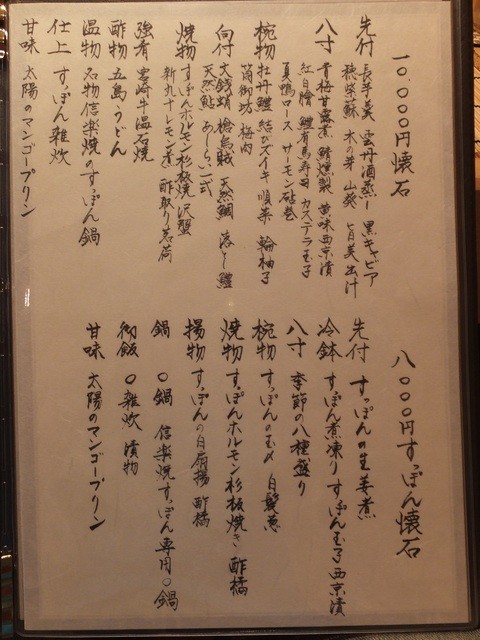 一〇、〇〇〇円懐石
先付 長芋羹 雲丹酒蒸し 黒キャビア
穂紫蘇 木の芽 山葵 旨美出汁
八寸 青梅甘露煮 鯖燻製 黄味西京漬
紅白膾 鱧有馬寿司 カステラ玉子
夏鴨ロース サーモン砧巻
椀物 牡丹鱧 結びズイキ 順菜 輪柚子
 梅肉
向付 文銭蛸 槍烏賊 天然鯛 落し鱧
天然鮎 あしらい一式
焼物 すっぽんホルモン杉板焼 沢蟹
新丸十レモン煮 酢取り茗荷
強肴 宮崎牛温石焼
酢物 五島うどん
温物 名物信楽焼のすっぽん鍋
仕上 すっぽん雑炊
甘味 太陽のマンゴープリン
八〇〇〇円すっぽん懐石
先付 すっぽんの生姜煮
冷鉢 すっぽん煮凍り すっぽん玉子西京漬
八寸 季節の八種盛り
椀物 すっぽんの 白髪葱
焼物 すっぽんホルモン杉板焼き 酢橘
揚物 すっぽんの白扇揚 酢橘
鍋 〇鍋 信楽焼すっぽん専用〇鍋
御飯 〇雑炊 漬物
甘味 太陽のマンゴープリン